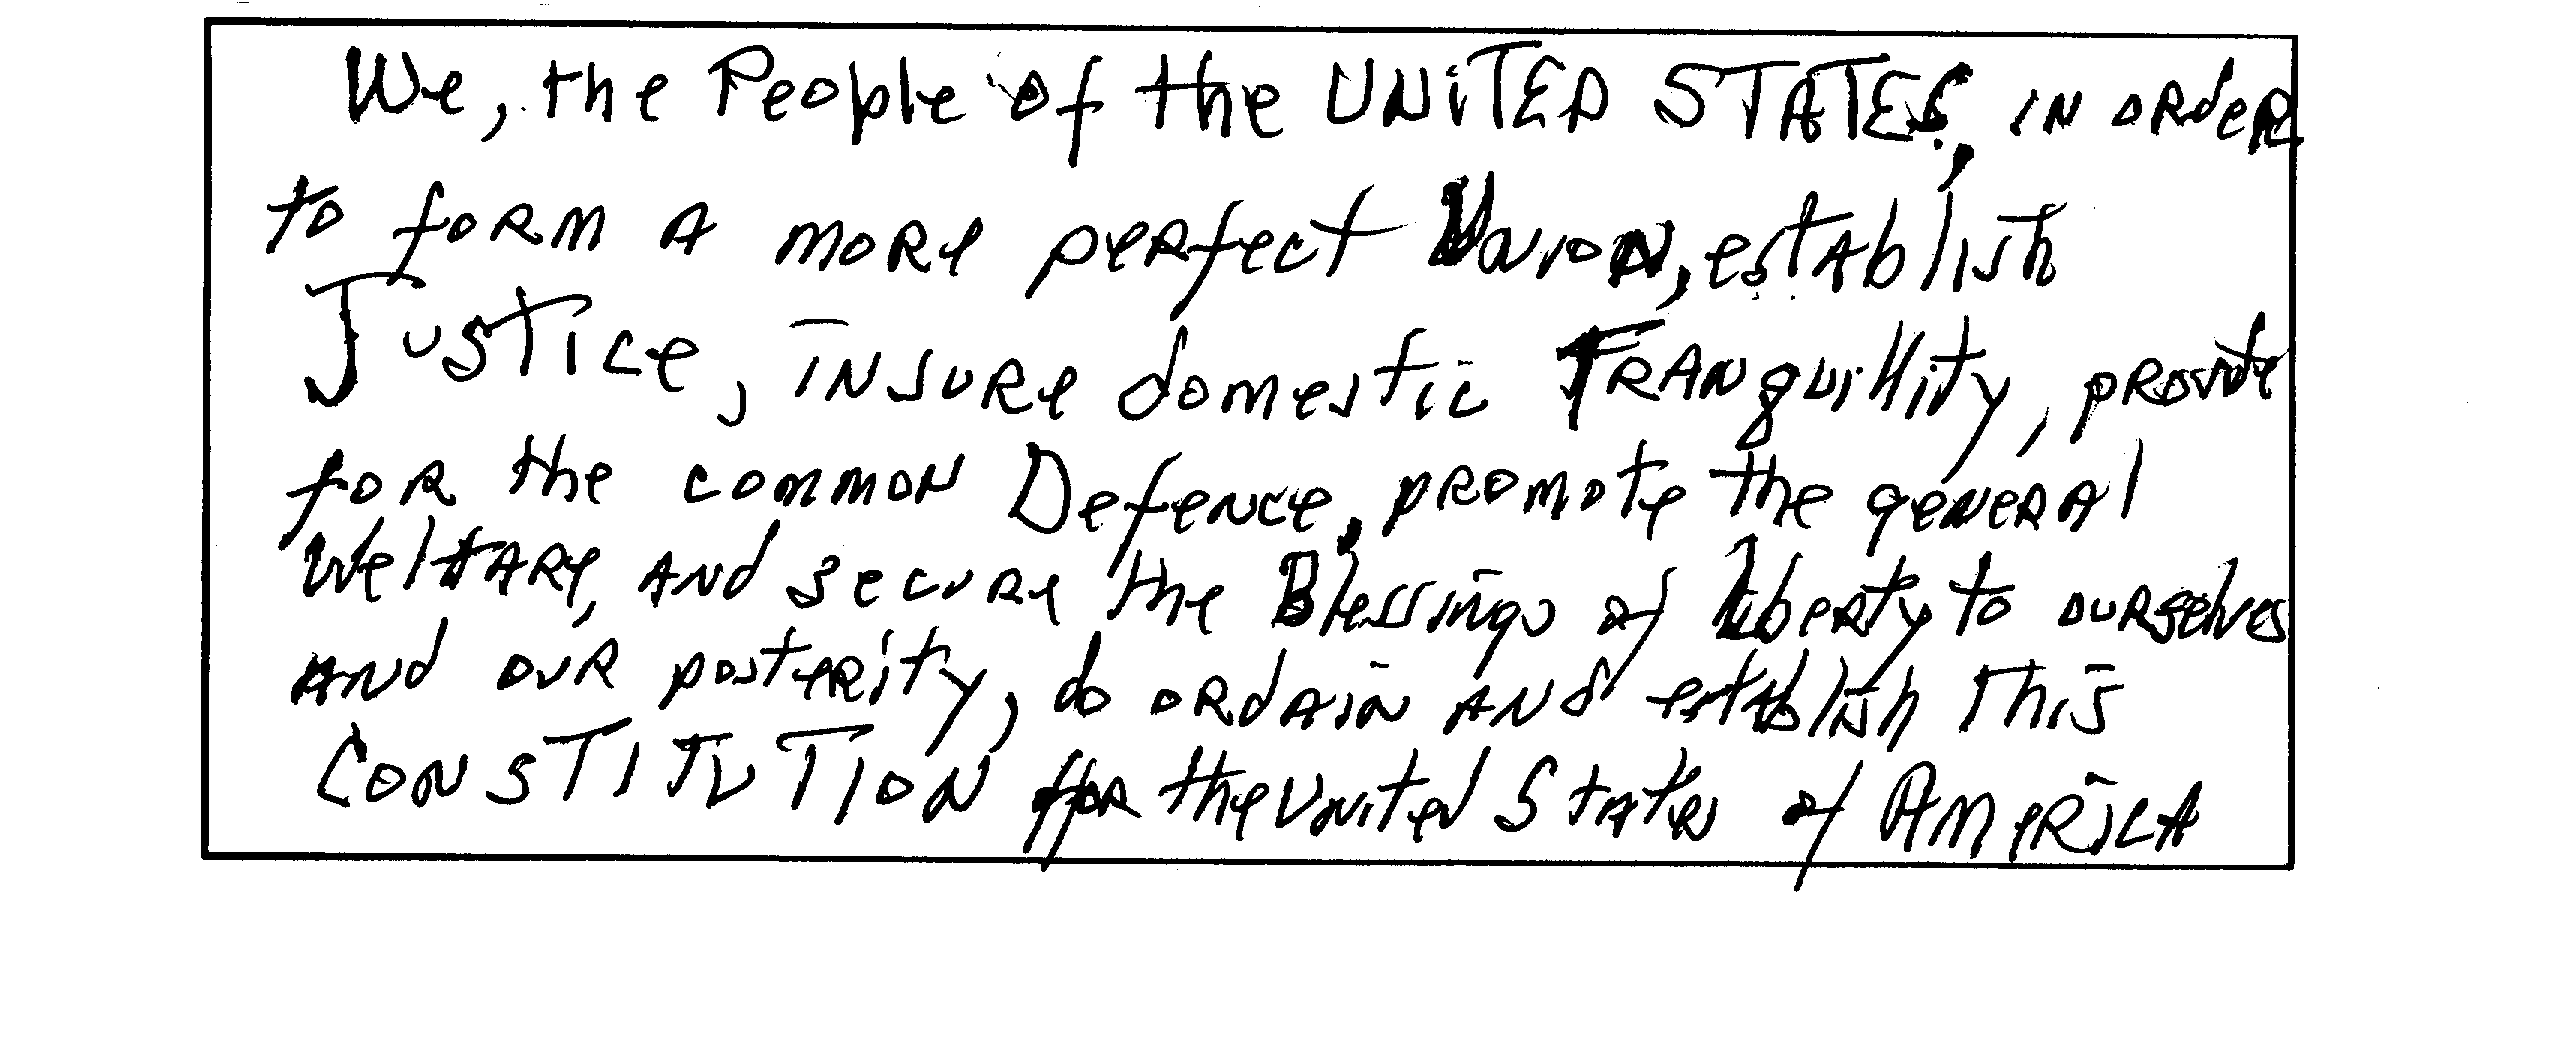 We, the People of the UNITED STATES, in order
to form a more perfect Union, establish
Justice, insure domestic Tranquillity, provide
for the common Defence, promote the general
Welfare, and secure the Blessings of liberty to ourselves
and our posterity, do ordain and establish this
CONSTITUTION for the United States of America